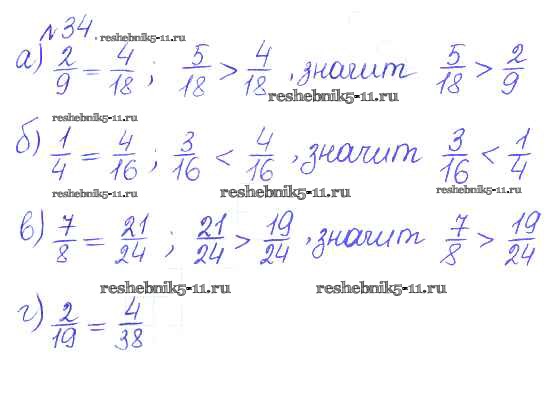 №34. reshebnik5-11.ru
а) 2/9 = 4/18 ; 5/18 > 4/18 , значит 5/18 > 2/9
reshebnik5-11.ru
reshebnik5-11.ru
б) 1/4 = 4/16 ; 3/16 < 4/16 , значит 3/16 < 1/4
reshebnik5-11.ru reshebnik5-11.ru reshebnik5-11.ru
в) 7/8 = 21/24 ; 21/24 > 19/24 , значит 7/8 > 19/24
reshebnik5-11.ru reshebnik5-11.ru
г) 2/19 = 4/38